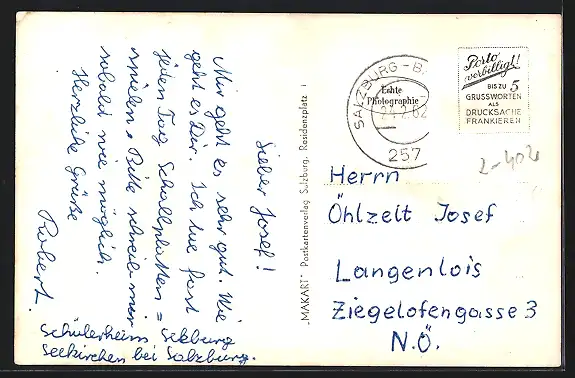 Lieber Josef!
Mir geht es sehr gut. Wie
geht es Dir. Ich tue fast
jeden Tag Schallplatten =
spielen. Bitte schreib mir
sobald wie möglich.
Herzliche Grüße
Robert.
Schülerheim Seeburg
Seekirchen bei Salzburg.
"MAKART" Postkartenverlag Salzburg, Residenzplatz 1
Echte
Photographie
SALZBURG-B
24.2.62
257
Porto
verbilligt!
BIS ZU 5
GRUSSWORTEN
ALS
DRUCKSACHE
FRANKIEREN
Herrn
Öhlzelt Josef
Langenlois
Ziegelofengasse 3
N.Ö.